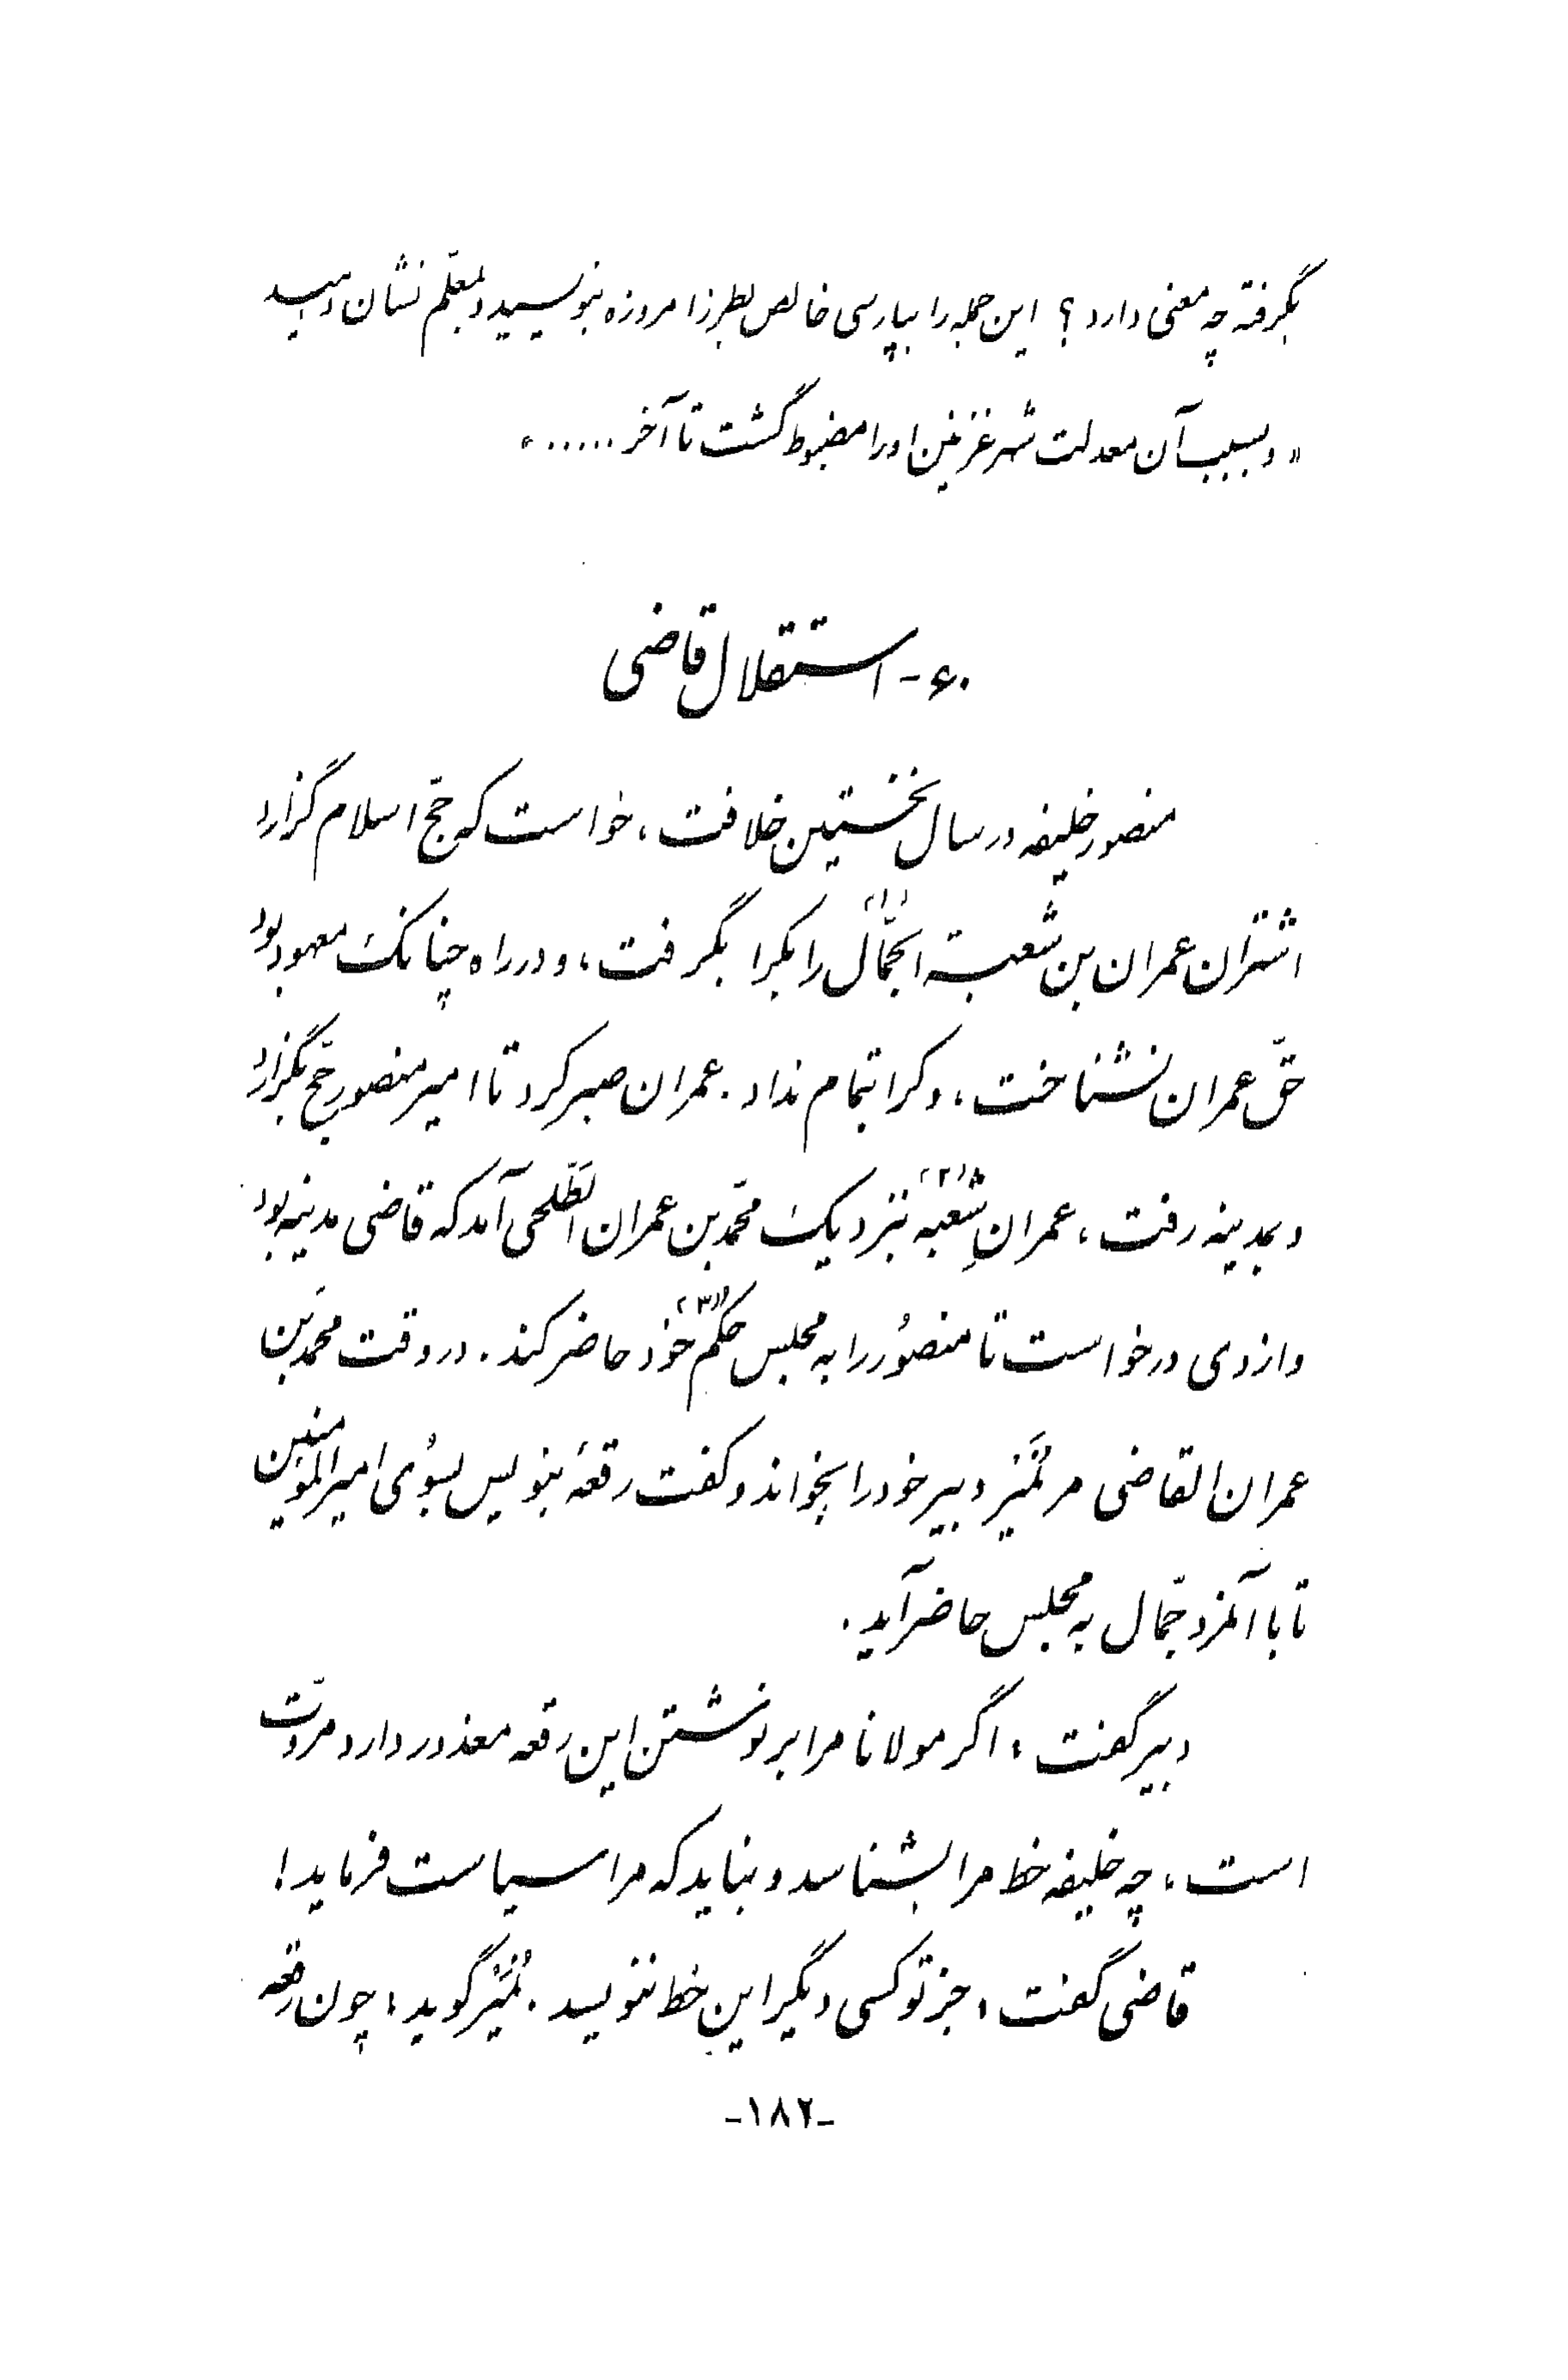 بگرفته چه معنی دارد؟ این جمله را بپارسی خالص بطرز امروزه بنویسید و بمعلّم نشان دهید
« و بسبب آن معدلت شهر غزنین او را مضبوط گشت تا آخر ...... »
۶۰- استقلال قاضی
منصور خلیفه در سال نخستین خلافت، خواست که حجّ اسلام گزارد
اشتران عمران بن شعبة الجمّال (۱) را بکرا بگرفت، و در راه چنانک معهود بود
حقّ عمران نشناخت، و کرا بتمام نداد. عمران صبر کرد تا امیر منصور حجّ بگزارد
و بمدینه رفت، عمرانِ شُعْبَه (۲) بنزدیک محمّد بن عمران الطَّلحی آمد که قاضی مدینه بود
و از وی درخواست تا منصُور را به مجلس حکم (۳) خود حاضر کند. در وقت محمد بن
عمران القاضی مر نُمَیر دبیر خود را بخواند و گفت رقعهٔ بنویس بسُوی امیرالمؤمنین
تا با آنمرد جمّال به مجلس حاضر آید.
دبیر گفت: اگر مولانا مرا بر نوشتن این رقعه معذور دارد مروّت
است، چه خلیفه خط مرا بشناسد و بناید که مرا سیاست فرماید!
قاضی گفت: جز تو کسی دیگر این خط ننویسد. نُمَیْر گوید: چون رقعه
-۱۸۲-